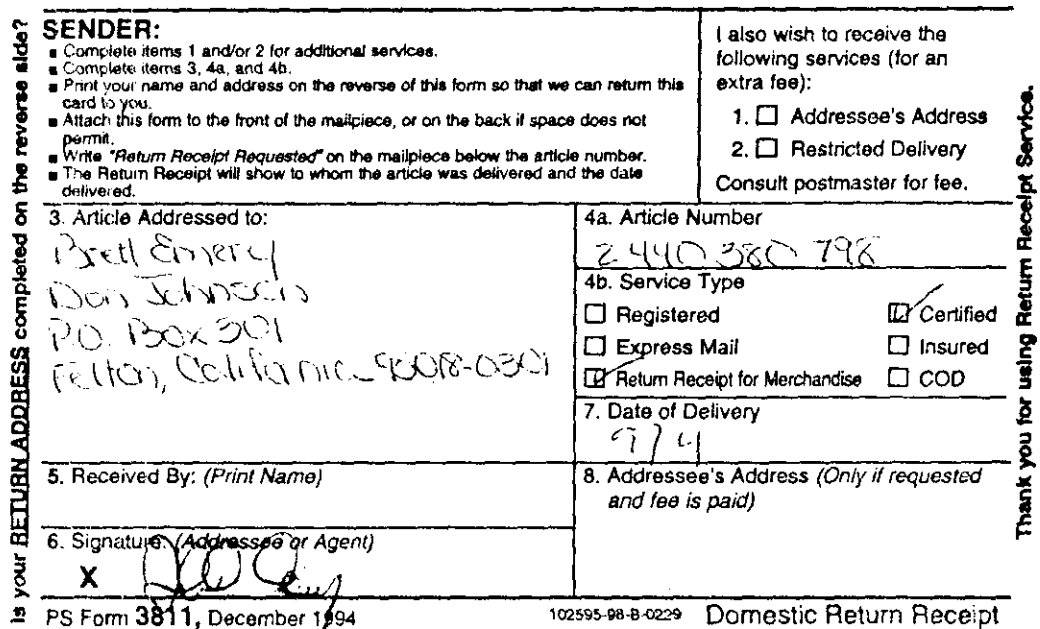 Is your RETURN ADDRESS completed on the reverse side?
SENDER:
■ Complete items 1 and/or 2 for additional services.
■ Complete items 3, 4a, and 4b.
■ Print your name and address on the reverse of this form so that we can return this
card to you.
■ Attach this form to the front of the mailpiece, or on the back if space does not
permit.
■ Write "Return Receipt Requested" on the mailpiece below the article number.
■ The Return Receipt will show to whom the article was delivered and the date
delivered.
I also wish to receive the
following services (for an
extra fee):
1. ☐ Addressee's Address
2. ☐ Restricted Delivery
Consult postmaster for fee.
3. Article Addressed to:
Brett Emery
Don Johnson
P.O. Box 301
Felton, California 95018-0301
4a. Article Number
Z 440 380 798
4b. Service Type
☐ Registered
☑ Certified
☐ Express Mail
☐ Insured
☑ Return Receipt for Merchandise
☐ COD
7. Date of Delivery
9/4
5. Received By: (Print Name)
8. Addressee's Address (Only if requested
and fee is paid)
6. Signature: (Addressee or Agent)
X
PS Form 3811, December 1994
102595-98-B-0229
Domestic Return Receipt
Thank you for using Return Receipt Service.